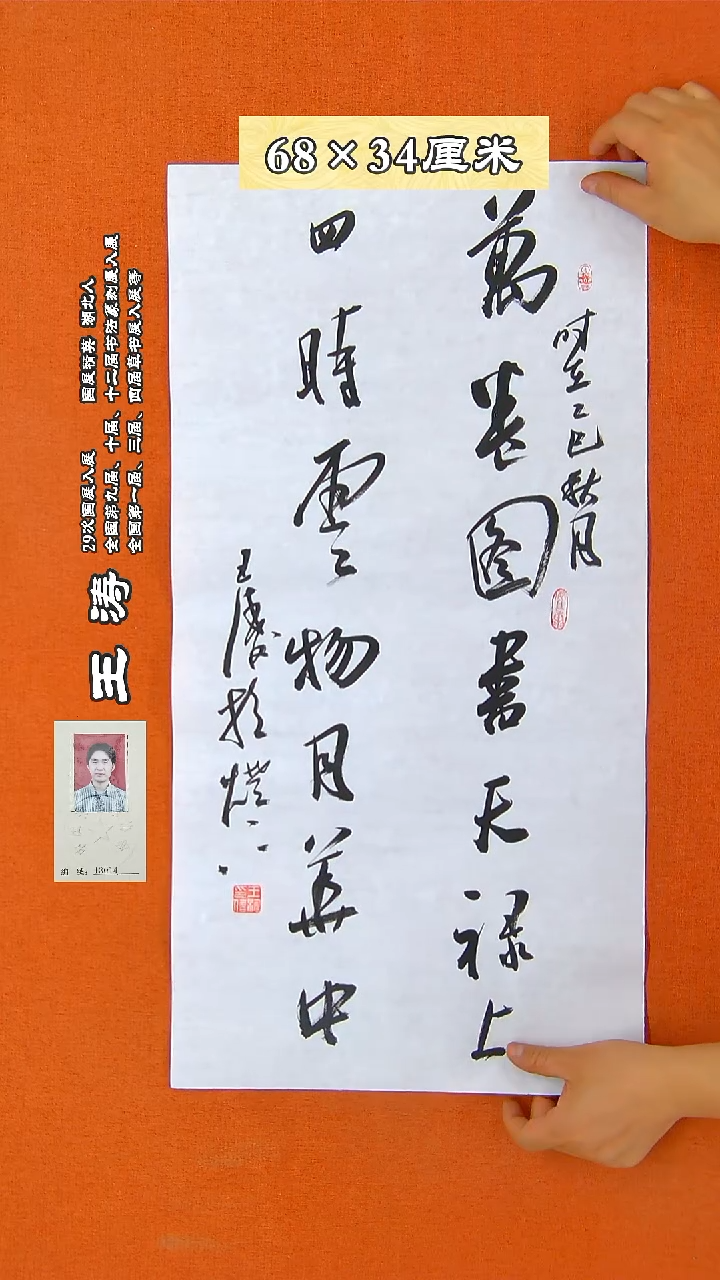 68×34厘米
萬卷图書天禄上
时在乙巳秋月
四時雲物月華中
王涛
29次国展入展 国展精英 湖北人
全国第九届、十届、十二届书法篆刻展入展
全国第一届、三届、四届草书展入展等